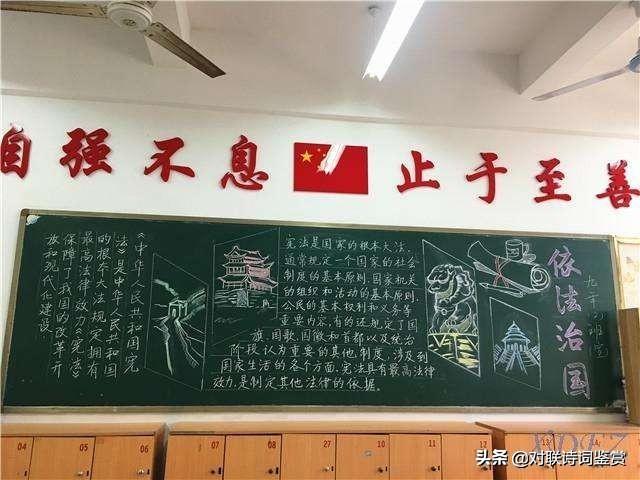 自强不息
止于至善
《中华人民共和国宪
法》是中华人民共和国
的根本大法,规定拥有
最高法律效力《宪法》
保障了我国的改革开
放和现代化建设.
宪法是国家的根本大法,
通常规定一个国家的社会
制度的基本原则,国家机关
的组织和活动的基本原则,
公民的基本权利和义务等
重要内容,有的还规定了国
旗,国歌,国徽和首都以及统治
阶段认为重要的其他制度,涉及到
国家生活的各个方面.宪法具有最高法律
效力,是制定其他法律的依据.
依法治国
04
05
06
07
08
09
10
11
12
13
头条 @对联诗词鉴赏